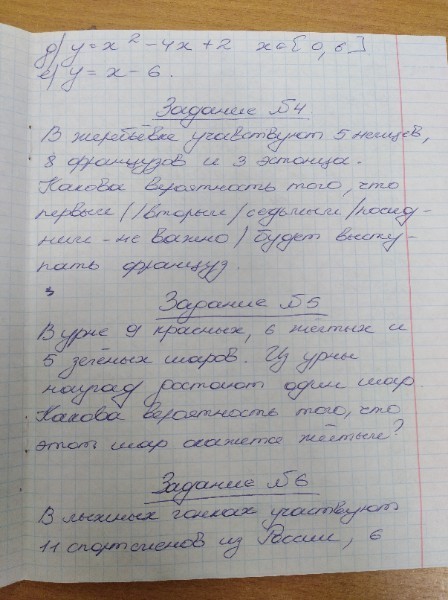 д) y = x² - 4x + 2 x ∈ [0, 6]
е) y = x - 6.
Задание №4
В жеребьёвке учавствуют 5 немцев,
8 французов и 3 эстонца.
Какова вероятность того, что
первым (/вторым/седьмым/послед-
ним - не важно) будет высту-
пать француз.
Задание №5
В урне 9 красных, 6 жёлтых и
5 зелёных шаров. Из урны
наугад достают один шар
Какова вероятность того, что
этот шар окажется жёлтым?
Задание №6
В лыжных гонках участвуют
11 спортсменов из России, 6